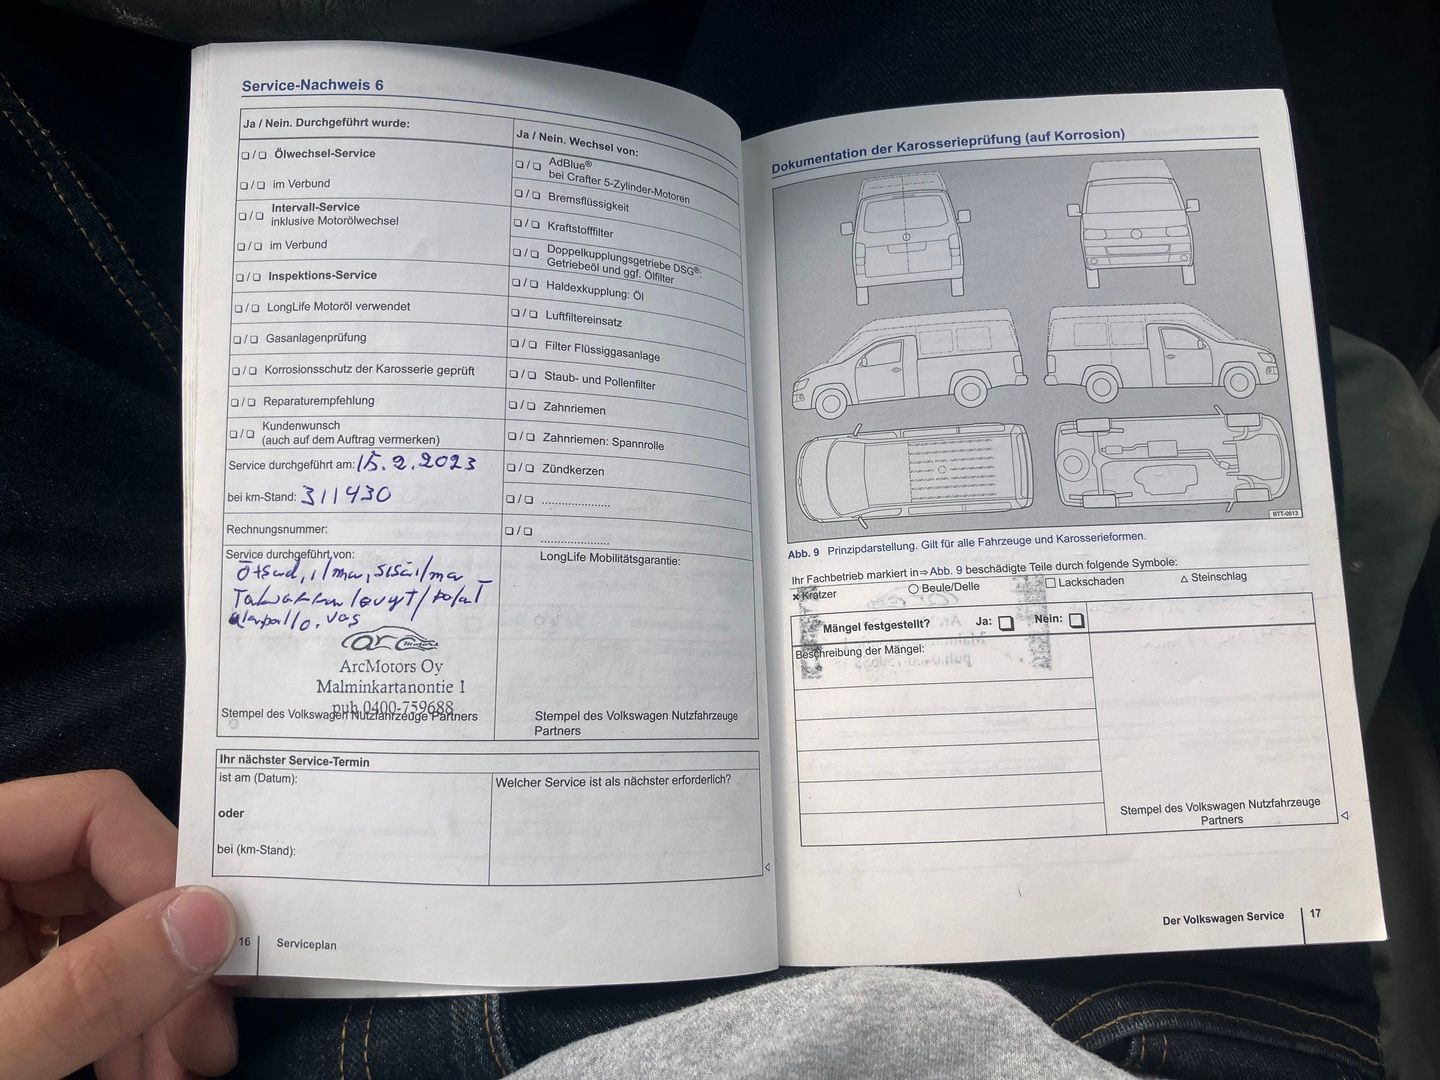 Service-Nachweis 6
Ja / Nein. Durchgeführt wurde:
❏ / ❏ Ölwechsel-Service
❏ / ❏ im Verbund
❏ / ❏ Intervall-Service
inklusive Motorölwechsel
❏ / ❏ im Verbund
❏ / ❏ Inspektions-Service
❏ / ❏ LongLife Motoröl verwendet
❏ / ❏ Gasanlagenprüfung
❏ / ❏ Korrosionsschutz der Karosserie geprüft
❏ / ❏ Reparaturempfehlung
❏ / ❏ Kundenwunsch
(auch auf dem Auftrag vermerken)
Service durchgeführt am: 15.2.2023
bei km-Stand: 311430
Rechnungsnummer:
Service durchgeführt von:
arc
ArcMotors Oy
Malminkartanontie 1
puh 0400-759688
Stempel des Volkswagen Nutzfahrzeuge Partners
Ja / Nein. Wechsel von:
❏ / ❏ AdBlue®
bei Crafter 5-Zylinder-Motoren
❏ / ❏ Bremsflüssigkeit
❏ / ❏ Kraftstofffilter
❏ / ❏ Doppelkupplungsgetriebe DSG®:
Getriebeöl und ggf. Ölfilter
❏ / ❏ Haldexkupplung: Öl
❏ / ❏ Luftfiltereinsatz
❏ / ❏ Filter Flüssiggasanlage
❏ / ❏ Staub- und Pollenfilter
❏ / ❏ Zahnriemen
❏ / ❏ Zahnriemen: Spannrolle
❏ / ❏ Zündkerzen
❏ / ❏ ....................
❏ / ❏ ....................
LongLife Mobilitätsgarantie:
Stempel des Volkswagen Nutzfahrzeuge
Partners
Ihr nächster Service-Termin
ist am (Datum):
oder
bei (km-Stand):
Welcher Service ist als nächster erforderlich?
16 Serviceplan
Dokumentation der Karosserieprüfung (auf Korrosion)
BTT-0513
Abb. 9 Prinzipdarstellung. Gilt für alle Fahrzeuge und Karosserieformen.
Ihr Fachbetrieb markiert in ⇒ Abb. 9 beschädigte Teile durch folgende Symbole:
✖ Kratzer ○ Beule/Delle □ Lackschaden △ Steinschlag
Mängel festgestellt? Ja: ❏ Nein: ❏
Beschreibung der Mängel:
Stempel des Volkswagen Nutzfahrzeuge
Partners
Der Volkswagen Service 17